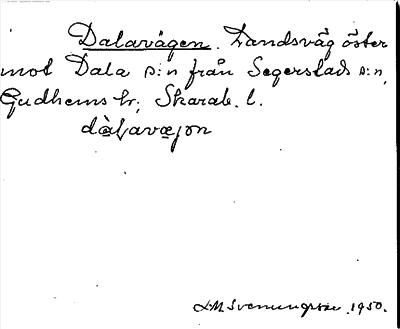 Dalavägen. Landsväg öster
mot Dala s:n från Segerstads s:n,
Gudhems hr, Skarab. l.
dàlavæjən
S.M. Svenungsson. 1950.